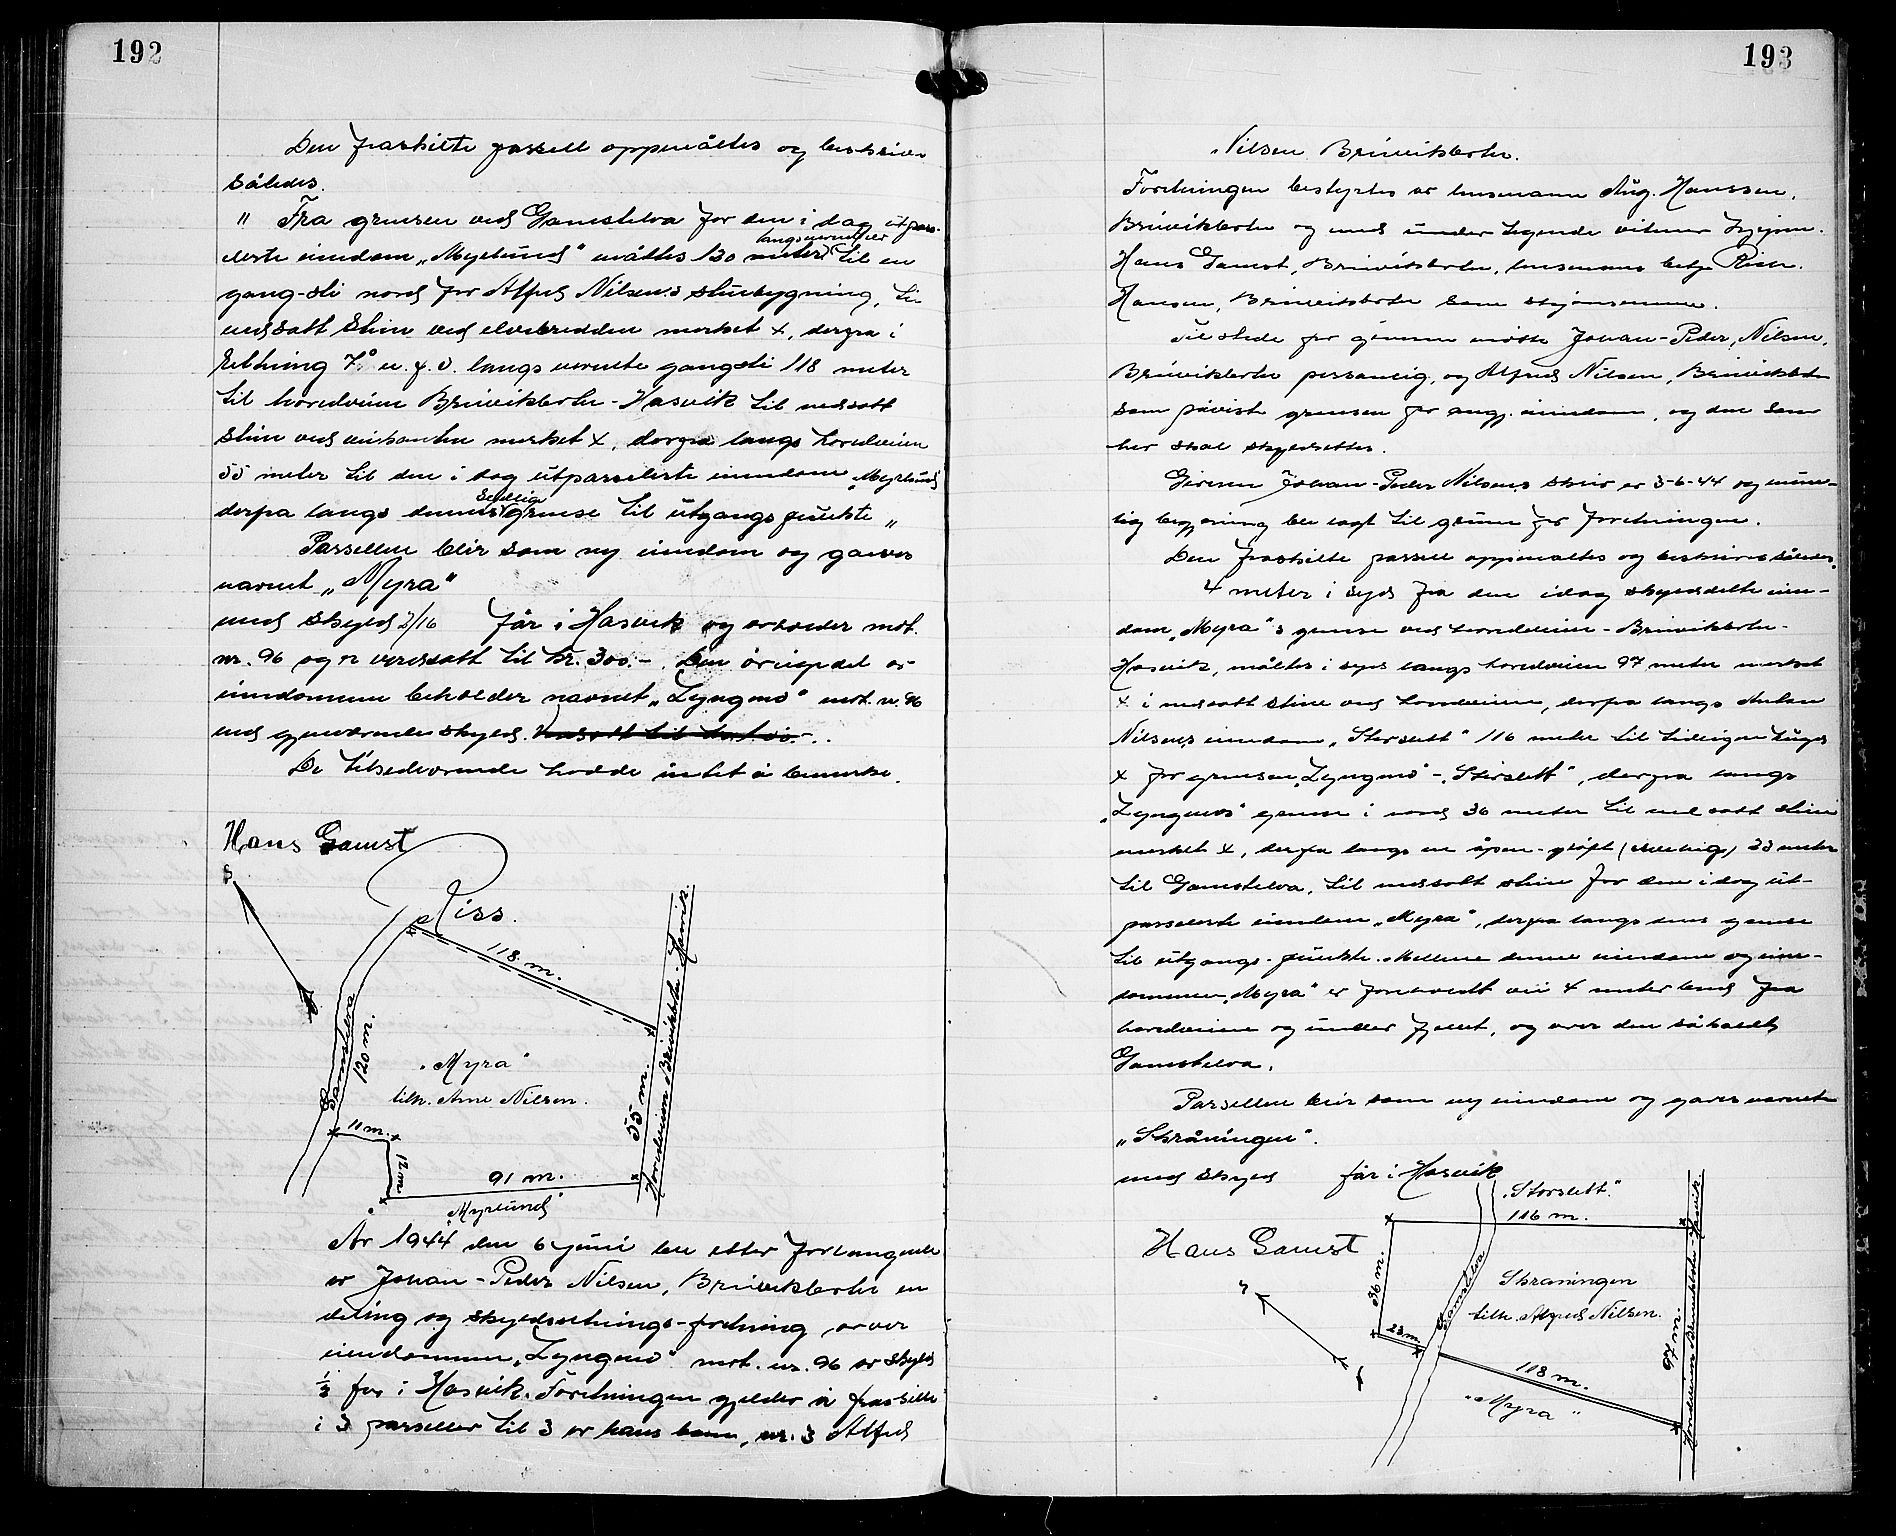 192
Den fraskilte parsell oppmåltes og beskrives
således.
" Fra grensen ved Gamstelva for den i dag utpar-
selerte eiendom „Myrlund" måltes 120 meter langs nevnte elv til en
gang-sti nord for Alfred Nilsens stuebygning, til
nedsatt sten ved elvebredden merket x, derfra i
retning 7° n. f. ø. langs nevnte gangsti 118 meter
til hovedveien Breivikbotn - Hasvik til nedsatt
sten ved veikanten merket x, derfra langs hovedveien
55 meter til den i dag utparselerte eiendom „Myrlund"
derfra langs dennes grense til utgangspunktet "
Parsellen blir som ny eiendom og gaves
navnet „Myra"
med skyld 2/16 før i Hasvik og avholdes mat.
nr. 96 og er verdsatt til kr. 300.-. Den øvrige del av
eiendommen beholder navnet „Lyngmo" mat. nr. 96
med gjenværende skyld.
De tilstedeværende hadde intet å bemerke.
Hans Gamst
S
Riss.
118 m.
Gamstelva
120 m.
„Myra"
tilh. Arne Nilsen.
11 m.
12 m
91 m.
„Myrlund"
55 m.
Hovedveien Breivikbotn - Hasvik.
År 1944 den 6 juni ble etter forlangende
av Johan-Peder Nilsen, Breivikbotn en
deling og skyldsetnings-forretning over
eiendommen „Lyngmo" mat. nr. 96 av skyld
1/2 før i Hasvik. Forretningen gjelder å fraskille
i 3 parseller til 3 av hans barn, nr. 3 Alfred
193
Nilsen Breivikbotn.
Forretningen bestyrtes av lensmann Aug. Hanssen,
Breivikbotn og med undertegnede vitner
Hans Gamst, Breivikbotn, lensmanns betj.
Hansen, Breivikbotn som skjønnsmenn.
Til stede for grensen møtte Johan-Peder Nilsen,
Breivikbotn personlig, og Alfred Nilsen, Breivikbotn
som påviste grensen for angj. eiendom, og den som
her skal skyldsettes.
Giveren Johan-Peder Nilsens skriv av 3-6-44 og munt-
lig begjæring ble lagt til grunn for forretningen.
Den fraskilte parsell oppmåltes og beskrives således.
4 meter i syd fra den idag skylddelte eien-
dom „Myra"s grense ved hovedveien - Breivikbotn -
Hasvik, måltes i syd langs hovedveien 97 meter merket
x i nedsatt stein ved hovedveien, derfra langs
Nilsens eiendom „Storslett" 116 meter til tidligere
x for grensen „Lyngmo" - „Storslett", derfra langs
„Lyngmos" grense i nord 36 meter til nedsatt stein
merket x, derfra langs en åpen-grøft 23 meter
til Gamstelva, til nedsatt stein for den i dag ut-
parselerte eiendom „Myra", derfra langs dens grense
til utgangs-punktet. Mellem denne eiendom og eien-
dommen „Myra" er forbeholdt vei 4 meter bred fra
hovedveien og under fjellet, og over den såkaldte
Gamstelva.
Parsellen blir som ny eiendom og gaves navnet
„Skråningen".
med skyld før i Hasvik
Hans Gamst
„Storslett."
116 m.
36 m.
Gamstelva
Skraningen
tilh. Alfred Nilsen.
23 m
118 m.
„Myra"
97 m.
Hovedveien Breivikbotn - Hasvik.